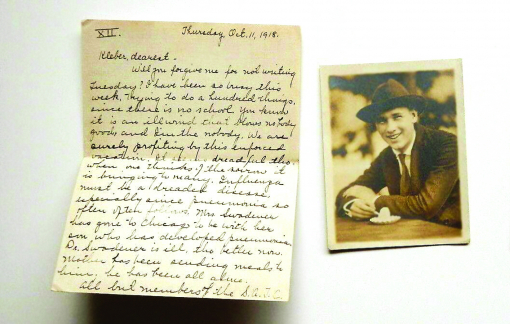 XII.
Thursday, Oct. 11, 1918.
Kleber, dearest -
Will you forgive me for not writing
Tuesday? I have been so busy this
week, trying to do a hundred things,
since there is no school. You know
it is an ill wind that blows
good, and I'm the nobody. We are
surely profiting by this enforced
vacation. It is dreadful tho
when one thinks of the sorrow it
is bringing to many. Influenza
must be a dreaded disease,
especially since pneumonia so
often follows. Mrs
has gone to Chicago to be with her
son who has developed pneumonia.
Dr. is ill, tho better now.
Mother has been sending meals to
him, he has been all alone.
All but members of the S.A.T.C.